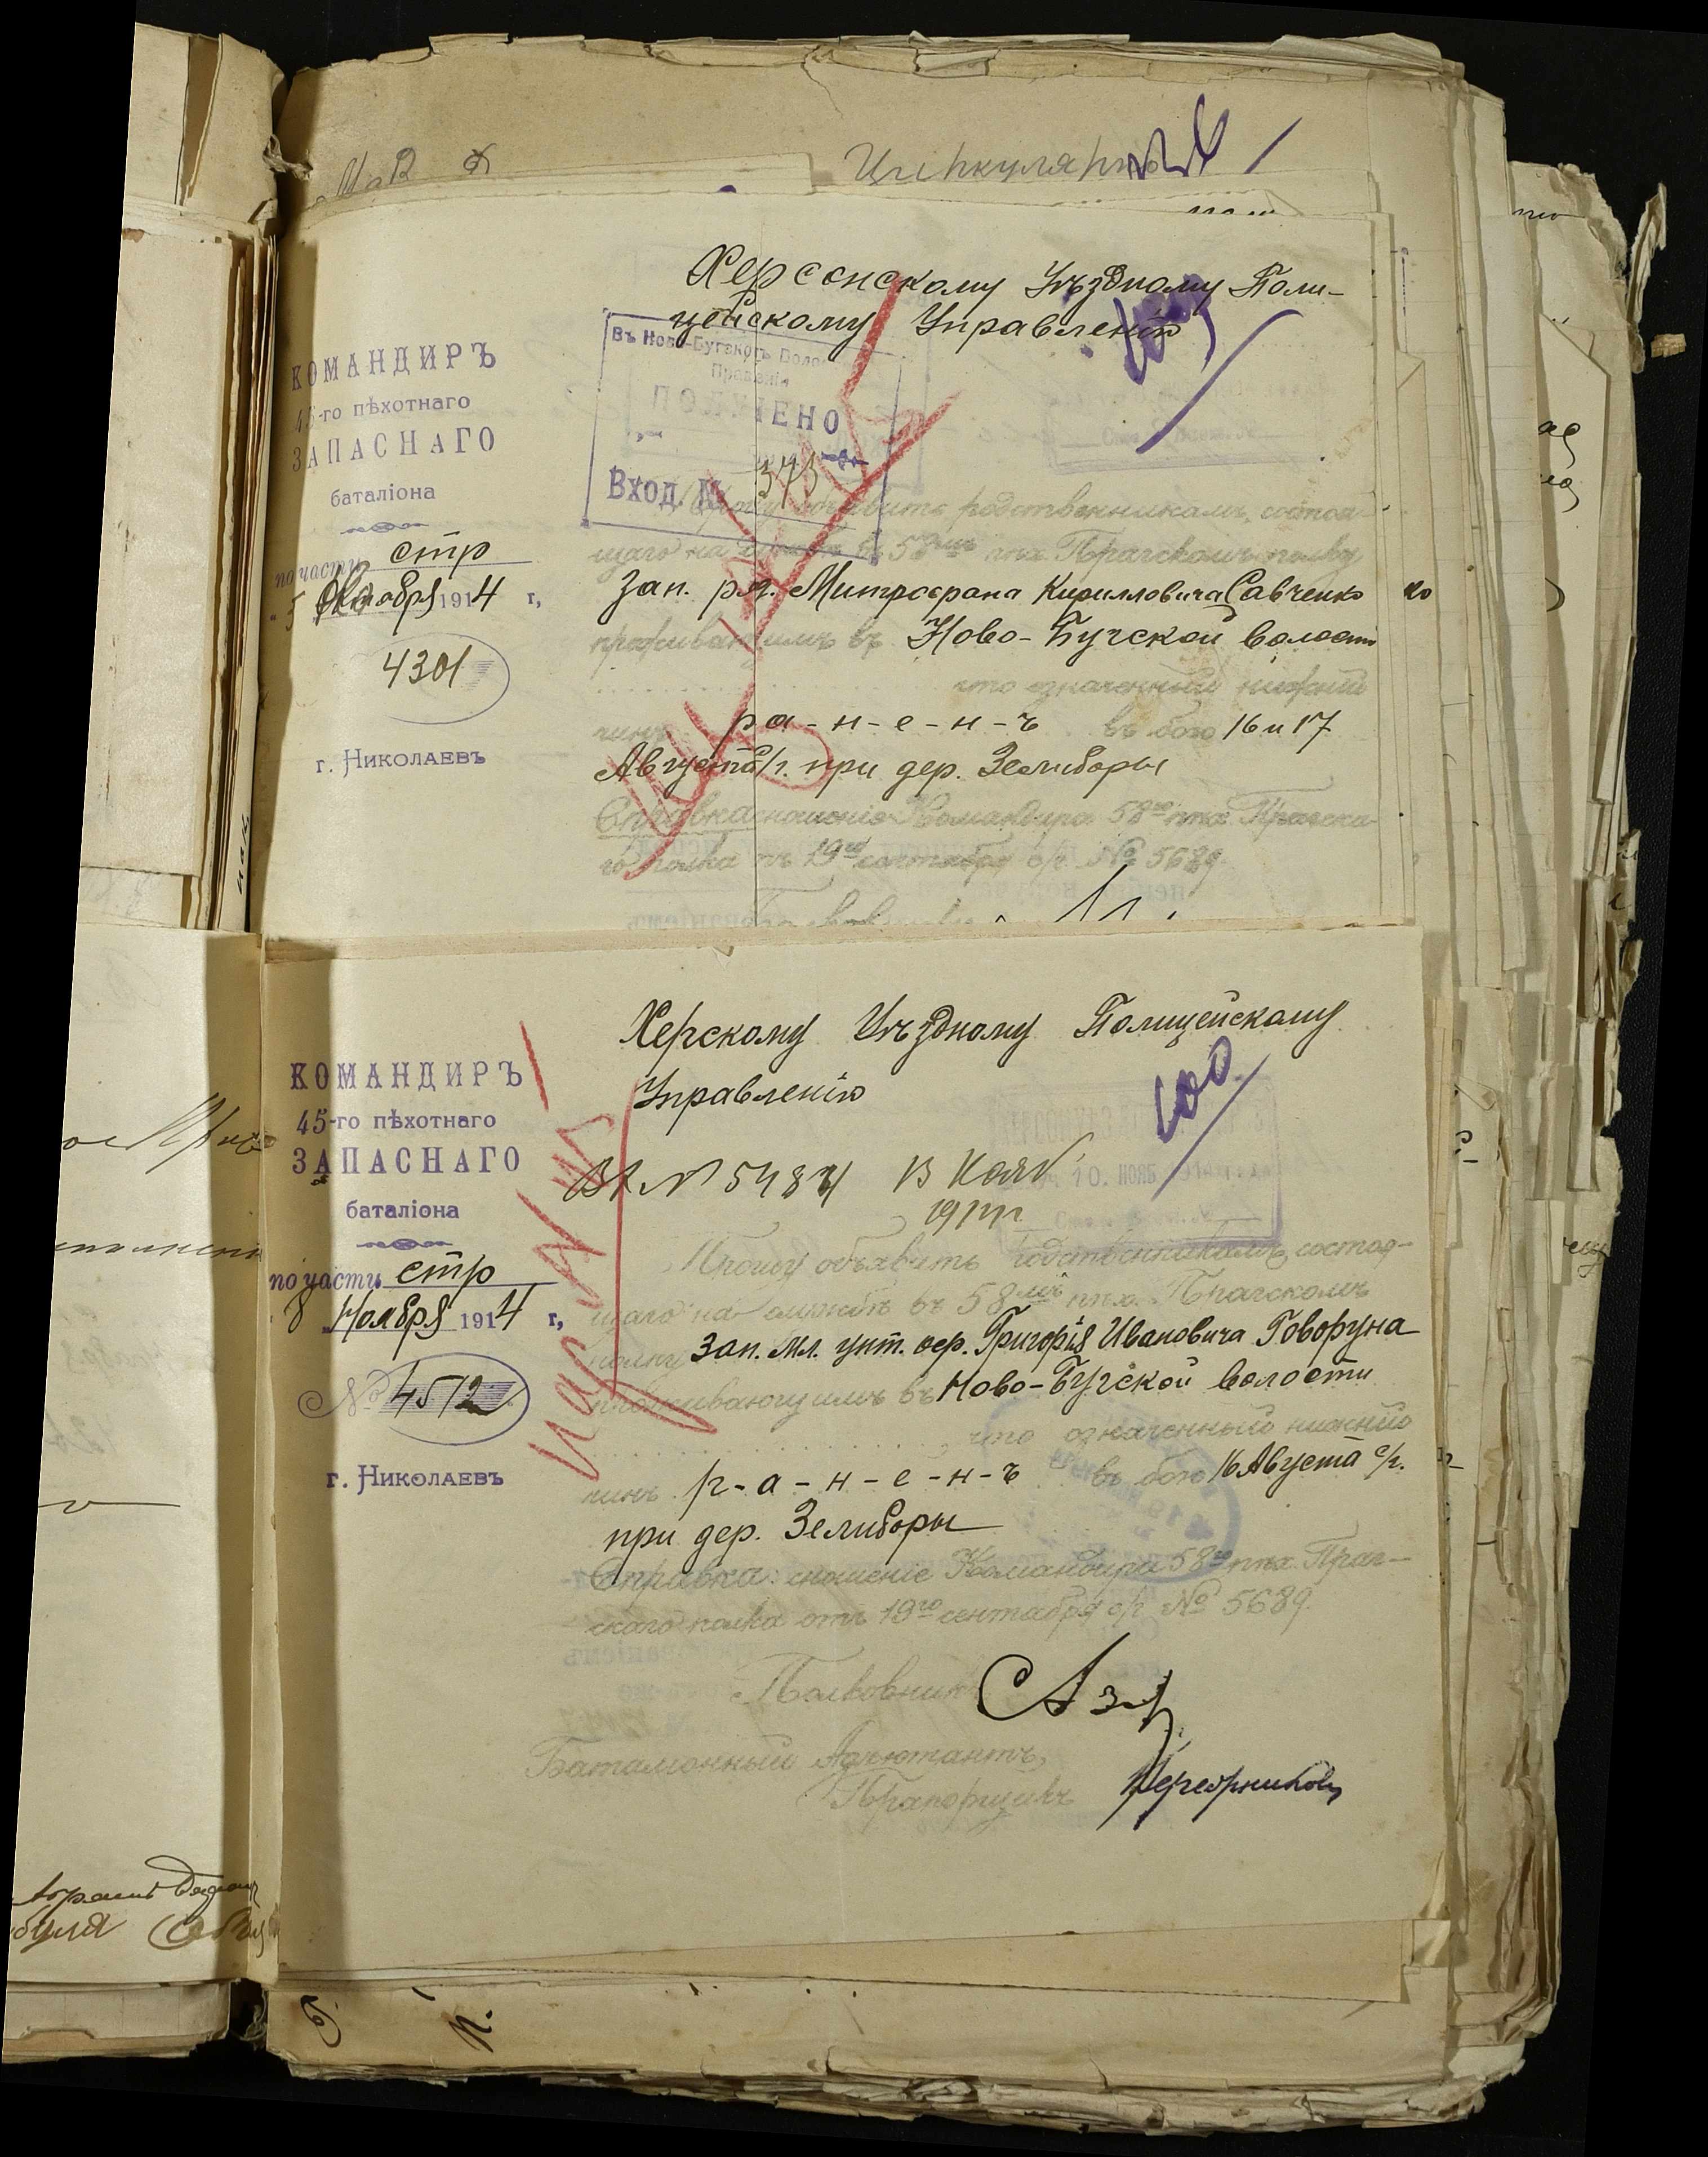 Циркулярно
Херсонскому Уѣздному Поли-
цейскому Управленію
Въ Ново-Бугском Воло
Правленіи
ПОЛУЧЕНО
Вход. №
373
КОМАНДИРЪ
45-го пѣхотнаго
ЗАПАСНАГО
баталіона
по части стр
5 Октября 1914 г,
4301
г. НИКОЛАЕВЪ
Прошу объявить родственникамъ, состоя
щаго на службѣ въ 58мъ пѣх. Прагскомъ полку
Зап. ря. Митрофана Кирилловича Савченко
проживающимъ въ Ново-Бугской волости
что означенный нижній
чинъ ра-н-е-н-ъ въ бою 16 и 17
Августа с/г. при дер. Зелиборы
Справка: сношеніе Командира 58го пѣх. Прагска
го полка отъ 19го сентября с/г. № 5689.
Херскому Уѣздному Полицейскому
Управленію
КОМАНДИРЪ
45-го пѣхотнаго
ЗАПАСНАГО
баталіона
по части стр
8 Ноября 1914 г,
№ 4512
г. НИКОЛАЕВЪ
Вх № 5484 13 Нояб.
1914 г
Прошу объявить родственникамъ, состоя-
щаго на службѣ въ 58мъ пѣх. Прагскомъ
полку Зап. мл. унт. оф. Григорія Ивановича Говоруна
проживающимъ въ Ново-Бугской волости
что означенный нижній
чинъ р-а-н-е-н-ъ въ бою 16 Августа с/г.
при дер. Зелиборы
Справка: сношеніе Командира 58го пѣх. Праг-
скаго полка отъ 19го сентября с/г. № 5689.
Полковникъ
Баталіонный Адъютантъ,
Прапорщикъ